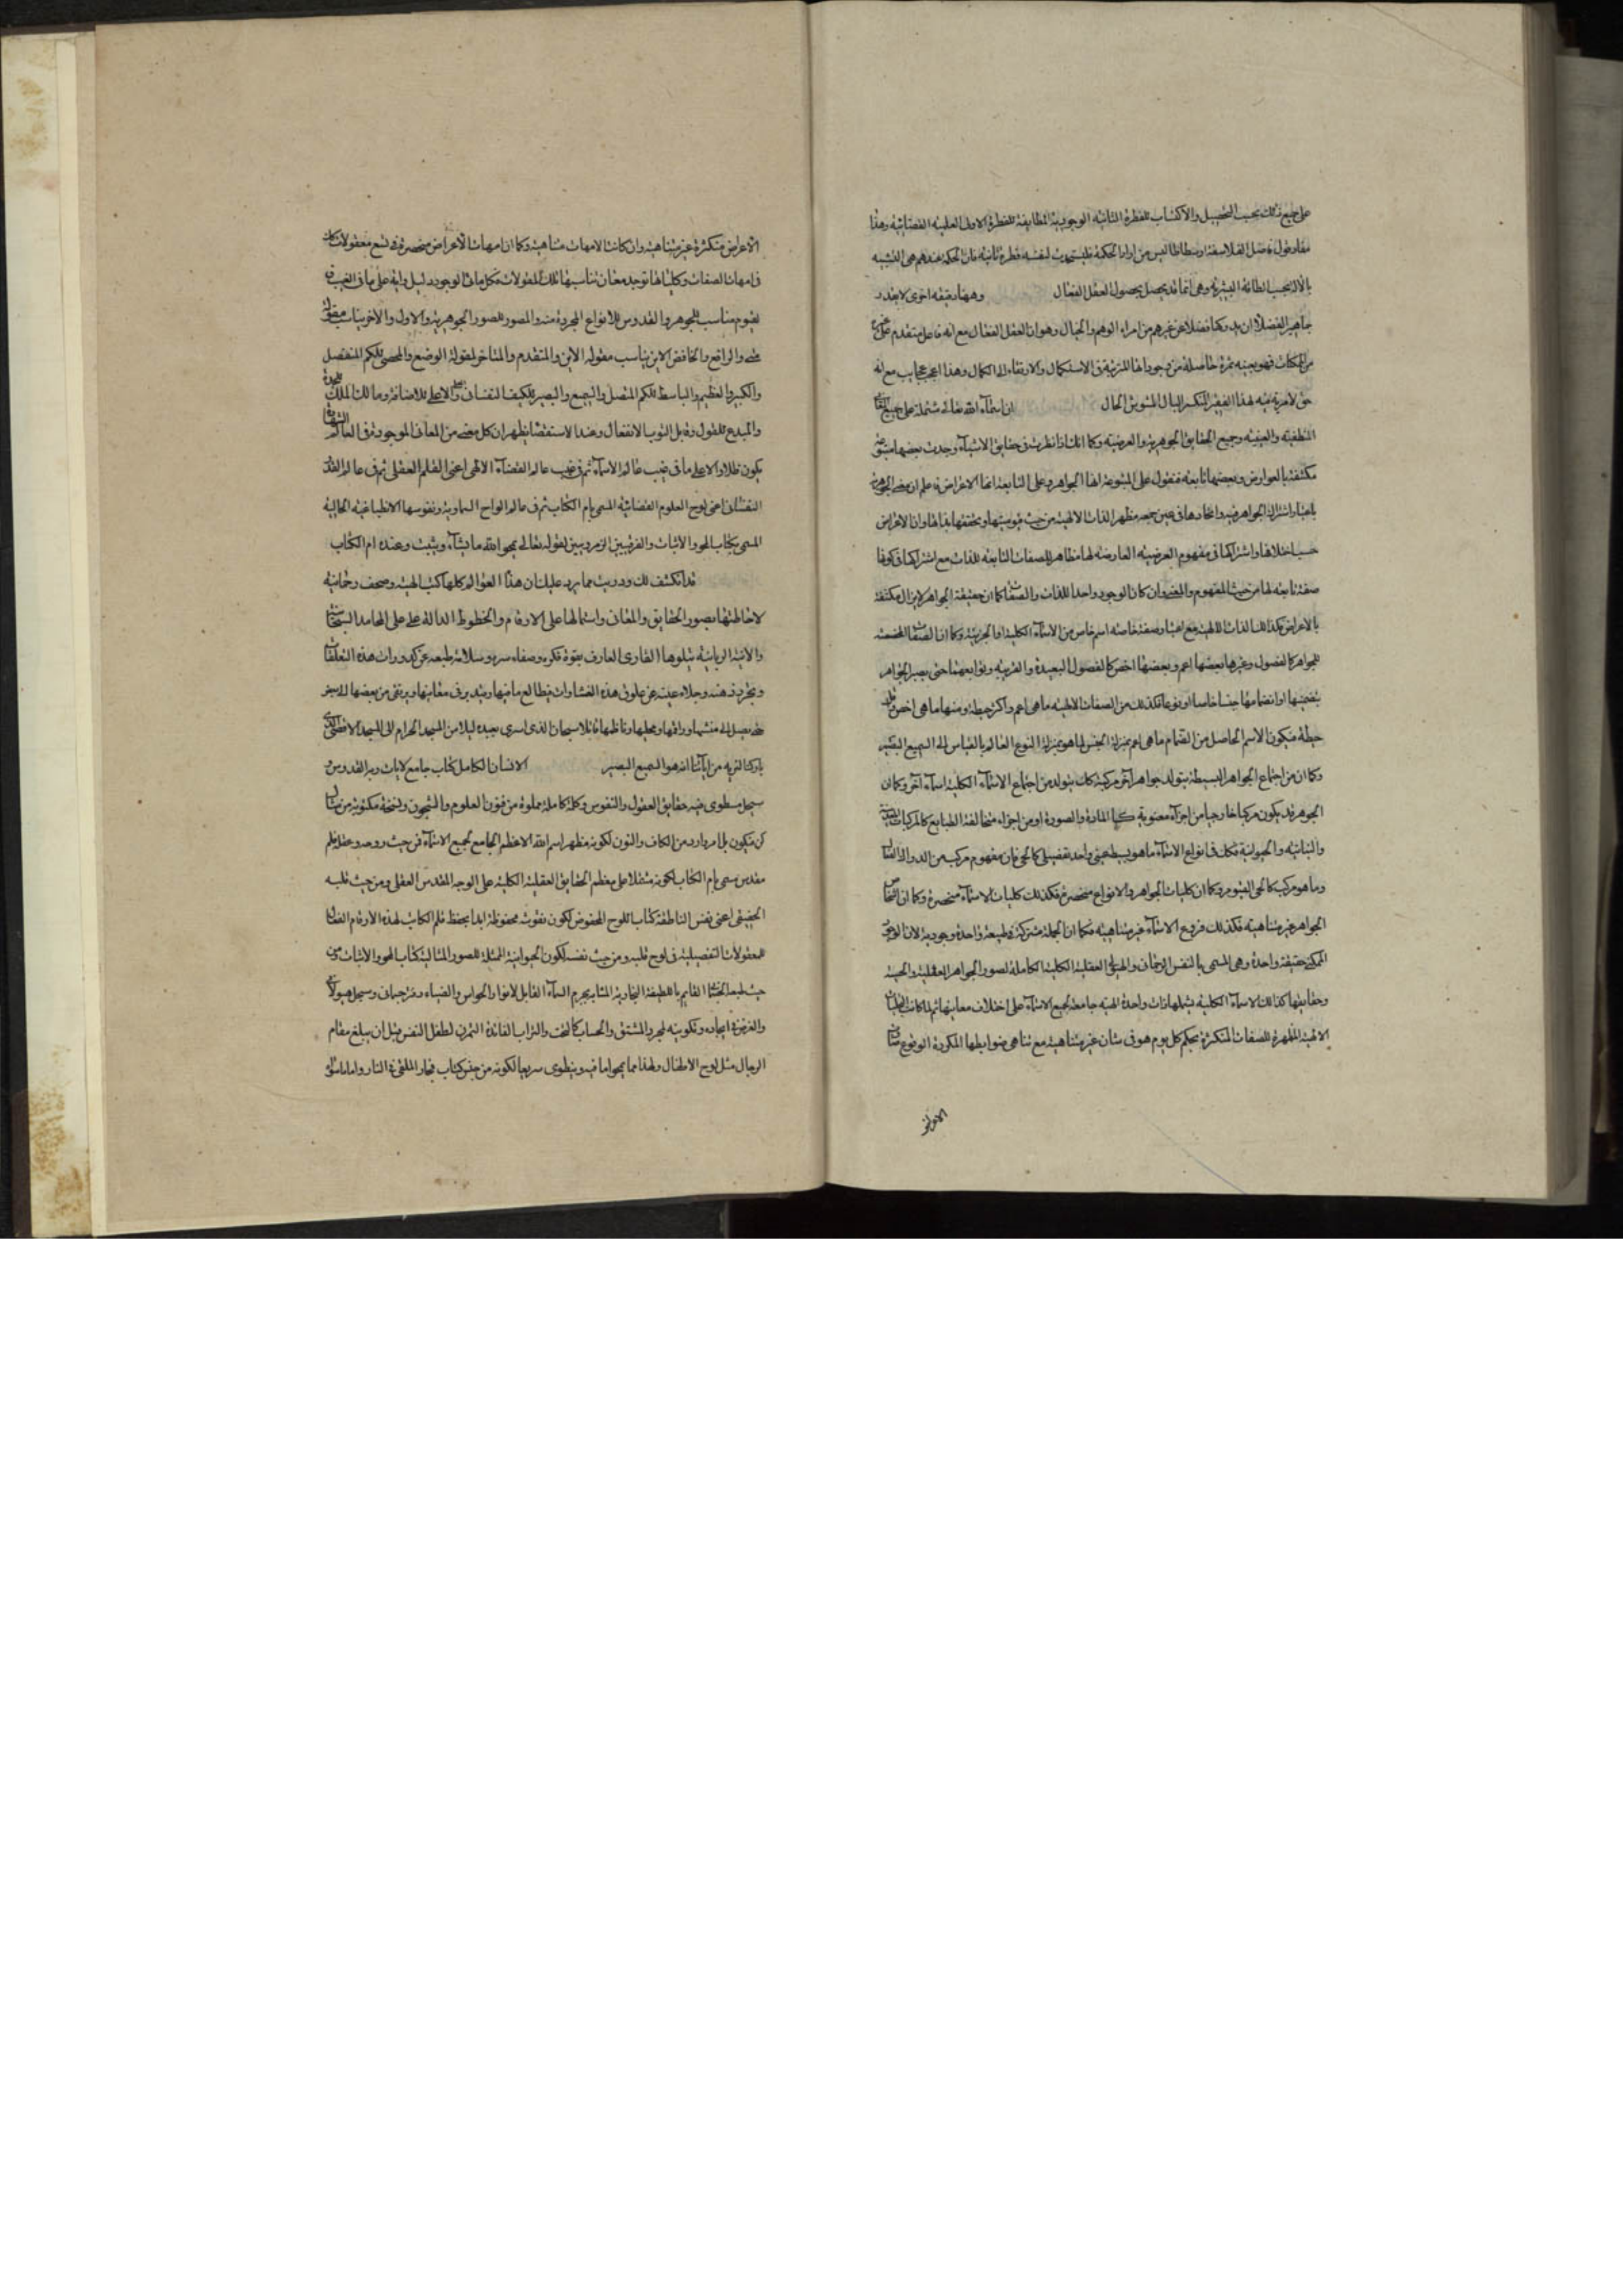 على جميع ذلك بحسب التحصيل والاكتساب للفطرة الثانية الوجودية المطابقة للفطرة الاولى العلمية القضائية وهذا
مفاد قول فاضل الفلاسفة ارسطاطاليس من اراد الحكمة فليستحدث لنفسه فطرة ثانية فان الحكمة عندهم هي التشبه
بالاله بحسب الطاقة البشرية وهى انما قد يحصل بحصول العقل الفعال وههنا دقيقة اخرى لا يقدر
جماهير الفضلاء ان يدركها فضلا عن غيرهم من امراء الوهم والخيال وهو ان العقل الفعال مع انه فاعل متقدم على
من الممكنات فهو بعينه ثمرة حاصلة من وجوداتها المترتبة في الاستكمال والارتقاء الى الكمال وهذا اعجب عجايب مع انه
حق لا مرية فيه لهذا الفقير المنكسر البال المشوش الحال ان اسماء الله تعالى مشتملة على جميع
المنطقية والعينية وجميع الحقايق الجوهرية والعرضية وكما انك اذا نظرت في حقايق الاشياء وجدت بعضها متبوعة
مكتنفة بالعوارض وبعضها تابعة فتقول على المتبوعة انها الجواهر وعلى التابعة انها الاعراض فاعلم ان معنى الجوهر
باعتبار اشتراك الجواهر فيه واتحادها في عين جمعه مظهر الذات الالهية من حيث قيوميتها وتحققها بذاتها وان الاعراض
حسب اختلافها واشتراكها في مفهوم العرضية العارضة لها مظاهر للصفات التابعة للذات مع اشتراكها في كونها
صفة تابعة لها من حيث المفهوم والمعنى وان كان الوجود واحدا للذات والصفات كما ان حقيقة الجواهر لا يزال مكتنفة
بالاعراض فكذلك الذات الالهية مع اعتبار صفة خاصة اسم خاص من الاسماء الكلية او الجزئية وكما ان الصفات
للجواهر كالفصول وغيرها بعضها اعم وبعضها اخص كالفصول البعيدة والقريبة وتوابعهما حتى يصير الجواهر
بتضمنها او انضمامها جنسا خاصا او نوعا فكذلك من الصفات الالهية ما هى اعم واكثر حيطة ومنها ما هى اخص
حيطة فيكون الاسم الحاصل من انضمام ما هى اعم بمنزلة الجنس لما هو بمنزلة النوع العالم بالقياس الى السميع البصير
وكما ان من اجتماع الجواهر البسيطة يتولد جواهر آخر مركبة كان يتولد من اجتماع الاسماء الكلية اسماء آخر وكما ان
الجوهر قد يكون مركبا خارجيا من اجزاء معنوية كالمادة والصورة او من اجزاء متخالفة الطبايع كالمركبات
والنباتية والحيوانية فكذا في انواع الاسماء ما هو بسيط بمعنى واحد تفصيلى كالحى فان مفهوم مركب من الدراك الفعال
وما هو مركب كالحى القيوم وكما ان كليات الجواهر والانواع منحصرة فكذلك كليات الاسماء منحصرة وكما ان اشخاص
الجواهر غير متناهية فكذلك فروع الاسماء غير متناهية فكما ان الجملة مشتركة في طبيعة واحدة وجودية لان الوجود
الممكن حقيقة واحدة وهى المسمى بالنفس الرحمانى والهيولى العقلية الكلية الكاملة لصور الجواهر العقلية والحسية
وحقايقها كذلك الاسماء الكلية يشملها ذات واحدة الهية جامعة لجميع الاسماء على اختلاف معانيها ثم لما كانت
الالهية المظهرة للصفات المتكثرة بحكم كل يوم هو في شان غير متناهية مع تناهى ضوابطها المكررة الوقوع
الاعراض متكثرة غير متناهية وان كانت الامهات متناهية وكما ان امهات الاعراض منحصرة في تسع مقولات كذلك
في امهات الصفات وكلياتها توجد معان تناسبها تلك المقولات فكل ما في الوجود دليل وآية على ما في الغيب
قيوم مناسب للجوهر والقدوس للانواع المجردة منه والمصور للصور الجوهرية والاول والآخر يناسب مقولة
متى والرافع والخافض الاين يناسب مقولة الاين والمتقدم والمتاخر لمقولة الوضع والمحصى للكم المنفصل
والكبير والعظيم والباسط للكم المتصل والسميع والبصير للكيف النفسانى والاعلى للاضافة ومالك الملك للجدة
والمبدع للفعل وقابل التوب الانفعال وعند الاستقصاء يظهر ان كل معنى من المعانى الموجودة في العالم الشهادة
يكون ظلا والا على ما في غيب عالم الاسماء ثم في غيب عالم القضاء الالهى اعنى القلم العقلى ثم في عالم القدر
النفسانى اعنى لوح العلوم القضائية المسمى بام الكتاب ثم في عالم الواح السماوية ونفوسها الانطباعية الخيالية
المسمى بكتاب المحو والاثبات لقوله تعالى يمحو الله ما يشاء ويثبت وعنده ام الكتاب
قد انكشف لك ودريت مما يرد عليك ان هذا العوالم كلها كتب الهية وصحف رحمانية
لاحاطتها بصور الحقايق والمعانى واشتمالها على الارقام والخطوط الدالة على
والاثنية الربانية يتلوها القارى العارف بقوة فكره وصفاء سره وسلامة طبعه عن كدورات هذه التعلقات
وتجرد ذهنه وجلاء عينه عن علوق هذه الغشاوات فيطالع ما فيها ويتدبر في معانيها ويرتقى من بعضها الى بعض
حتى يصل الى منشئها وراقمها وممليها وناظمها قائلا سبحان الذى اسرى بعبده ليلا من المسجد الحرام الى المسجد الاقصى الذى
باركنا لنريه من اياتنا انه هو السميع البصير الانسان الكامل كتاب جامع لايات ربه القدوس
سجل مطوى فيه حقايق العقول والنفوس وكلمة كاملة مملوة من فنون العلوم والشجون ونسخة مكتوبة من مثال
كن فيكون بل امر وارد من الكاف والنون لكونه مظهر اسم الله الاعظم الجامع لجميع الاسماء فمن حيث روحه وعقله قلم
مقدس مسمى بام الكتاب لكونه مشتملا على معظم الحقايق العقلية الكلية على الوجه المقدس العقلى ومن حيث قلبه
الحقيقى اعنى نفس الناطقة كتاب اللوح المحفوظ لكون نقوشه محفوظة ابدا بحفظ قلم الكاتب لهذه الارقام الفعال
للمعقولات التفصيلية في لوح قلبه ومن حيث نفسه لكون الحيوانية الممثلة للصور المثالية كتاب المحو والاثبات ومن
حيث طبعه القايم باللطيفة البخارية المشابه بجرم السماء القابل لانوار الحواس والضياء دفتر جسمانى وسجل هيولانى
والغرض في ايجاده وتكوينه المشتق والحساب كالتخت والتراب الفائدة التمرن لطفل النفس قبل ان يبلغ مقام
الرجال مثل لوح الاطفال ولهذا مما يمحو ما فيه وينطوى سريعا لكونه من جنس كتاب فجار الملقى في النار واما ما سوى